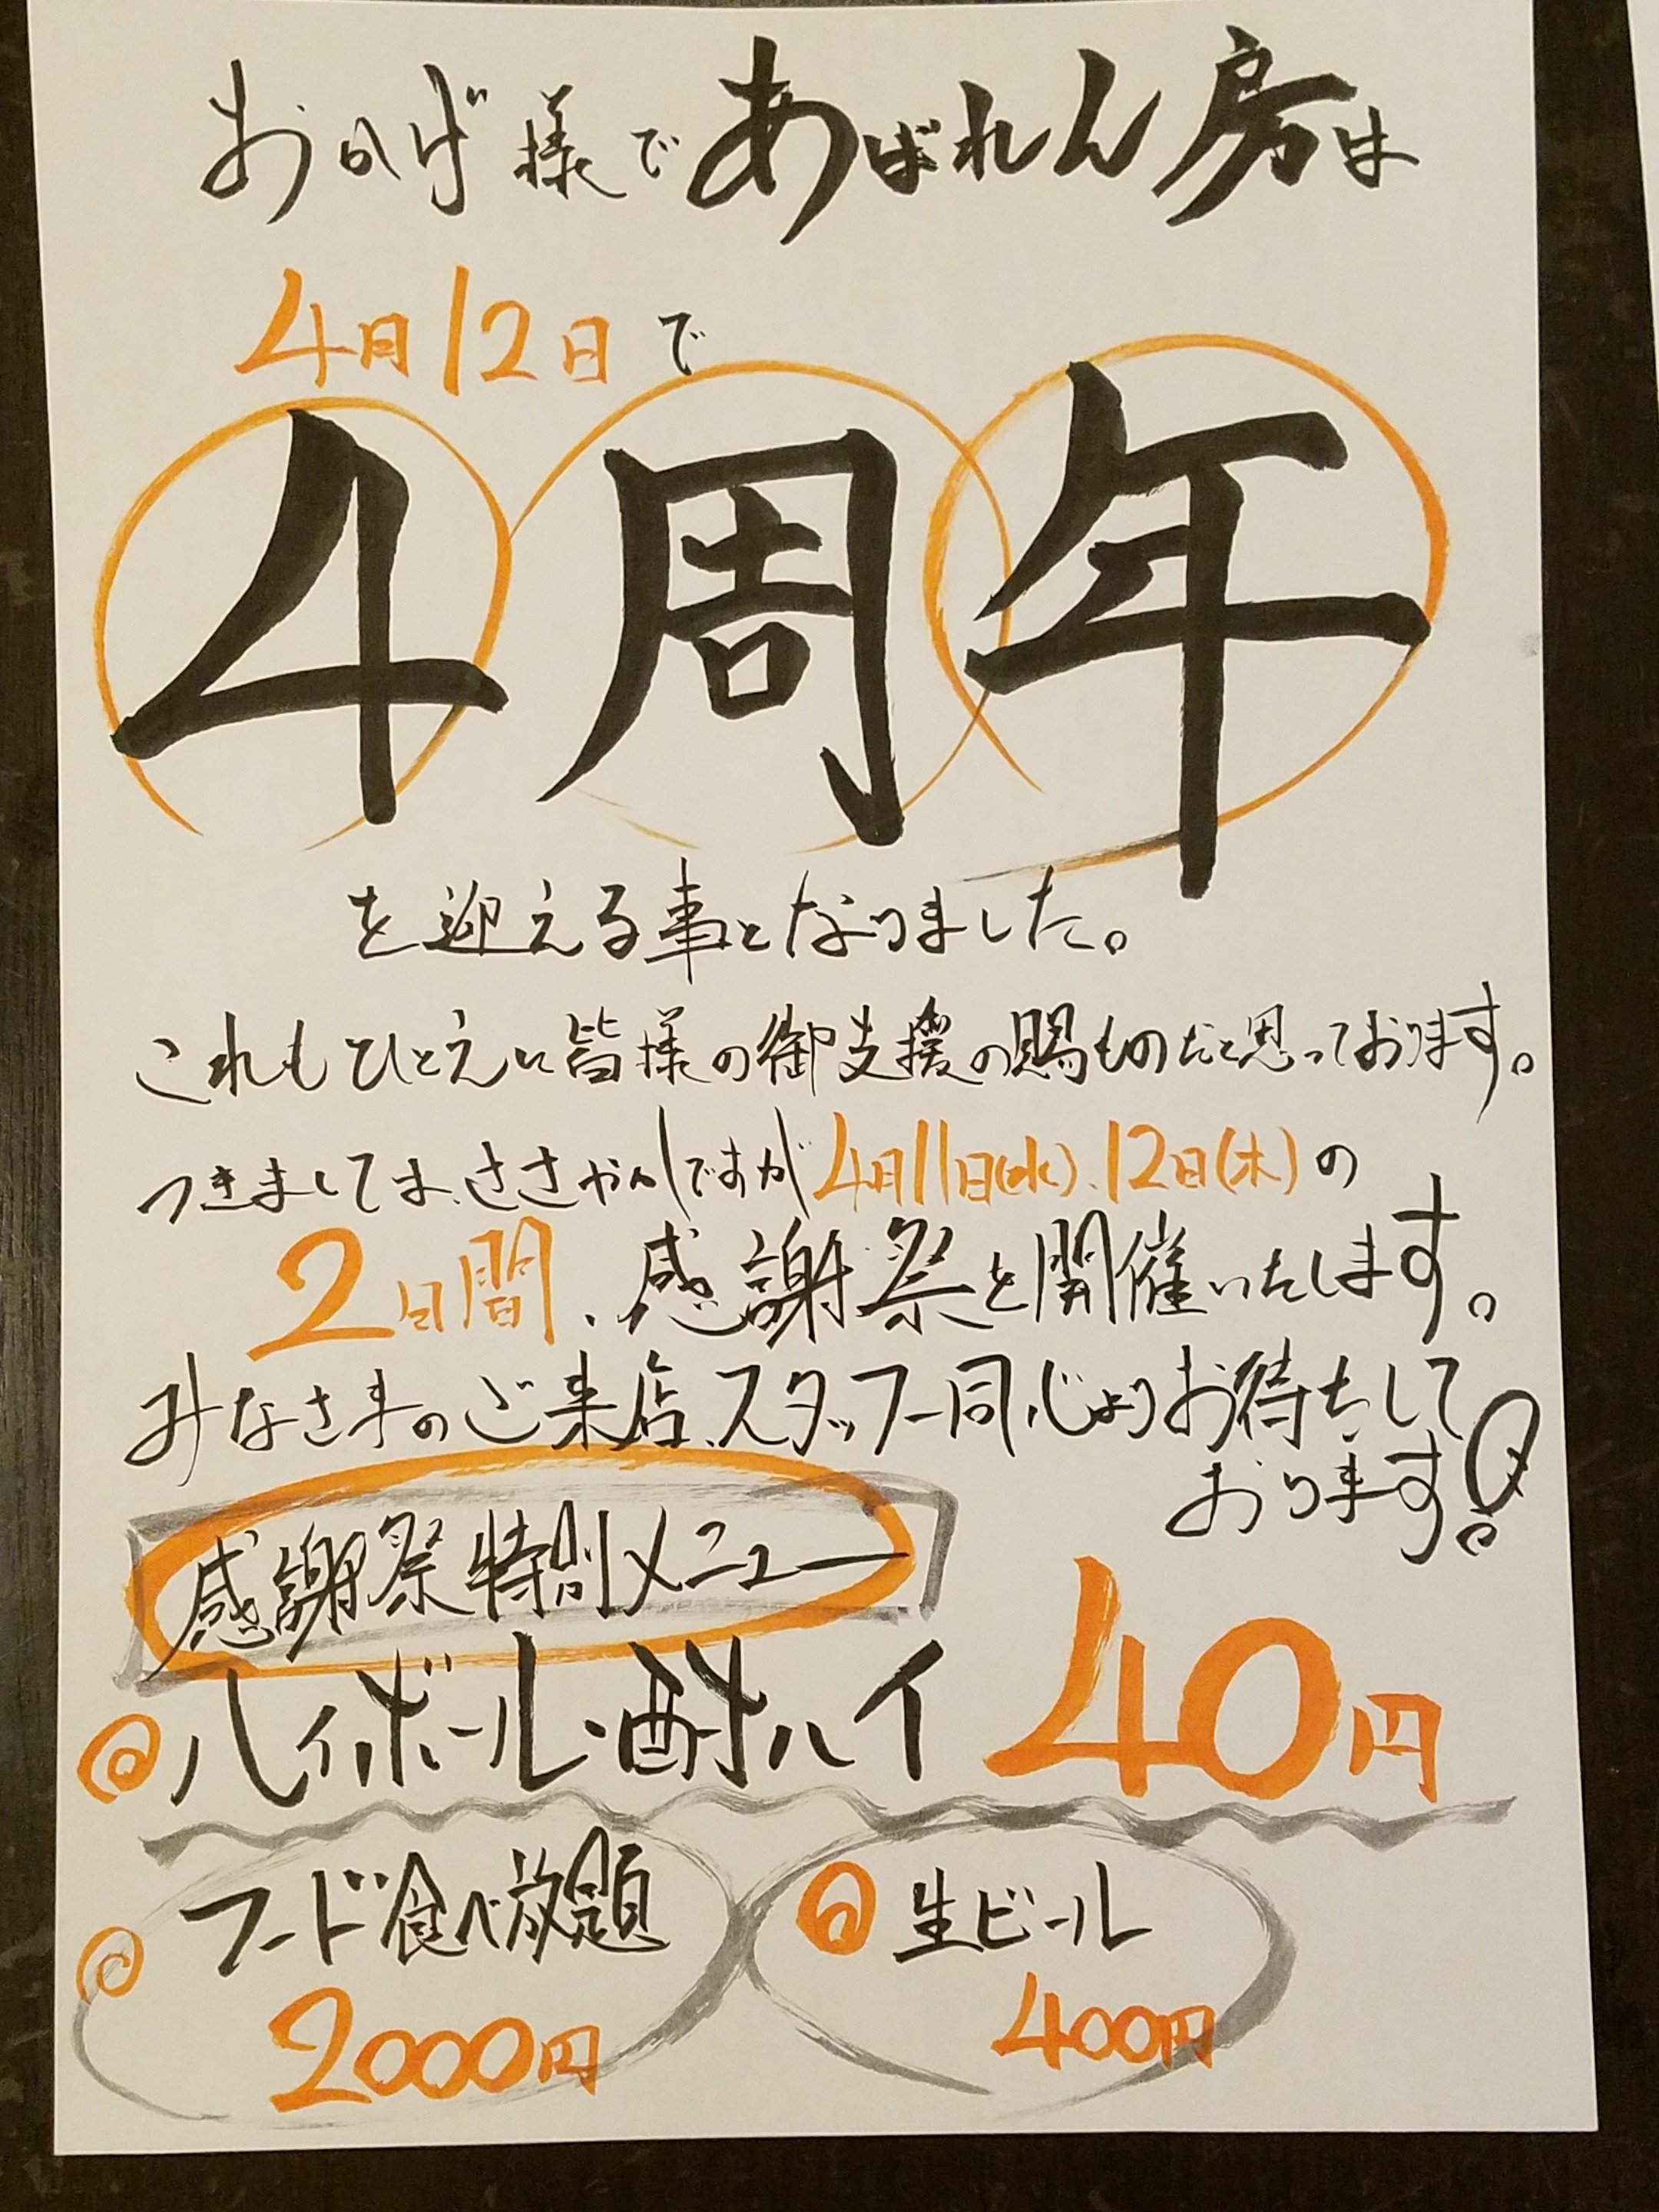 おかげ様であばれん房は
4月12日で
4周年
を迎える事となりました。
これもひとえに皆様の御支援の賜ものだと思っております。
つきましては、ささやかですが4月11日(水)、12日(木)の
2日間、感謝祭を開催いたします。
みなさまのご来店、スタッフ一同心よりお待ちして
おります。
感謝祭特別メニュー
ハイボール・酎ハイ 40円
フード食べ放題
2000円
生ビール
400円